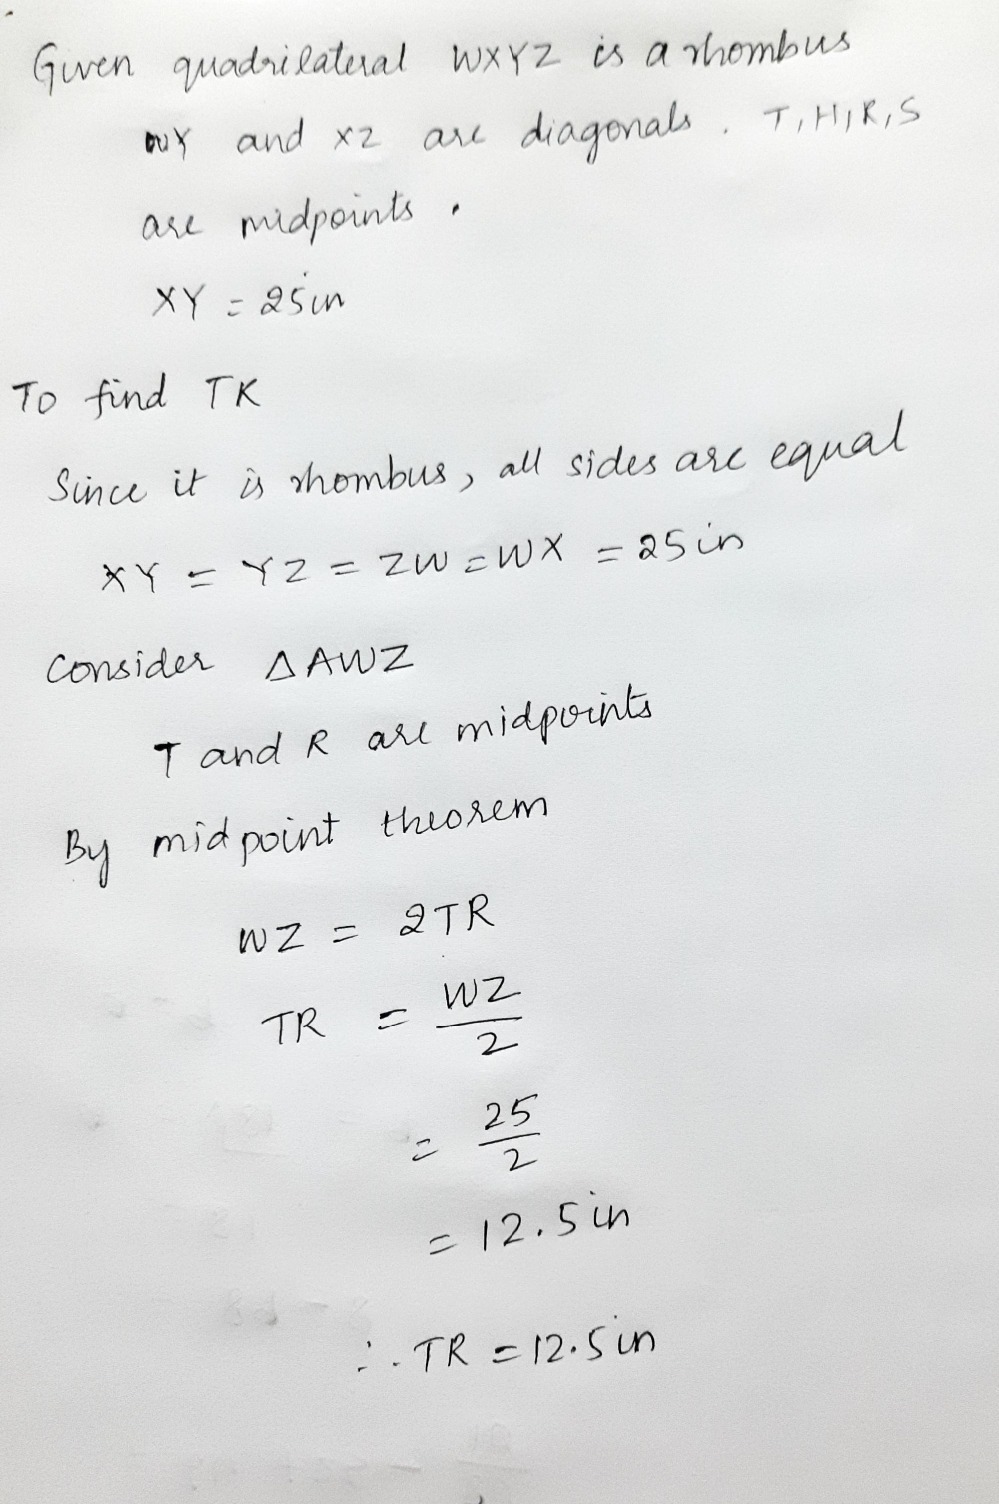 Given quadrilateral WXYZ is a rhombus
WY and XZ are diagonals. T, H, R, S
are midpoints.
XY = 25in
To find TK
Since it is rhombus, all sides are equal
XY = YZ = ZW = WX = 25 in
Consider △AWZ
T and R are midpoints
By midpoint theorem
WZ = 2TR
TR = WZ/2
= 25/2
= 12.5 in
∴ TR = 12.5 in